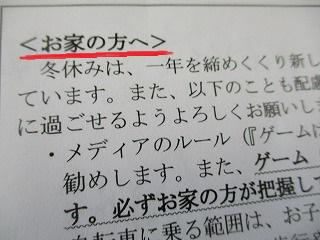 <お家の方へ>
冬休みは、一年を締めくくり新し
ています。また、以下のことも配慮
に過ごせるようよろしくお願いしま
・メディアのルール(『ゲームに
勧めします。また、ゲーム
す。必ずお家の方が把握して
自転車に乗る範囲は、お子